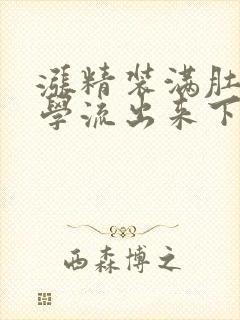 漲精装满肚
學流出来下
西森博之